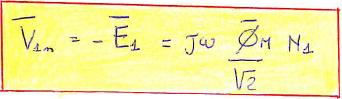 V̅₁ₙ = - E̅₁ = Jω Φ̅ₘ/√2 N₁